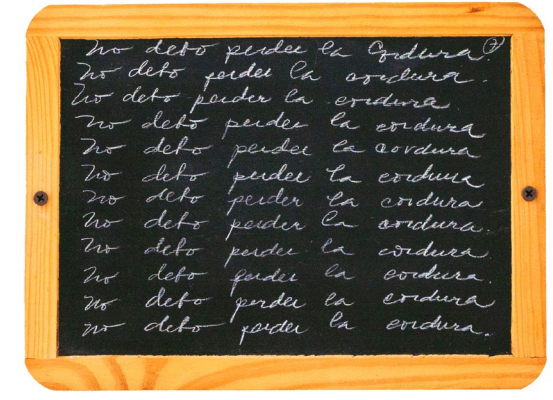 No debo perder la Cordura.
No debo perder la cordura.
No debo perder la cordura.
No debo perder la cordura
No debo perder la cordura
No debo perder la cordura
No debo perder la cordura
No debo perder la cordura.
No debo perder la cordura.
No debo perder la cordura.
No debo perder la cordura
No debo perder la cordura.